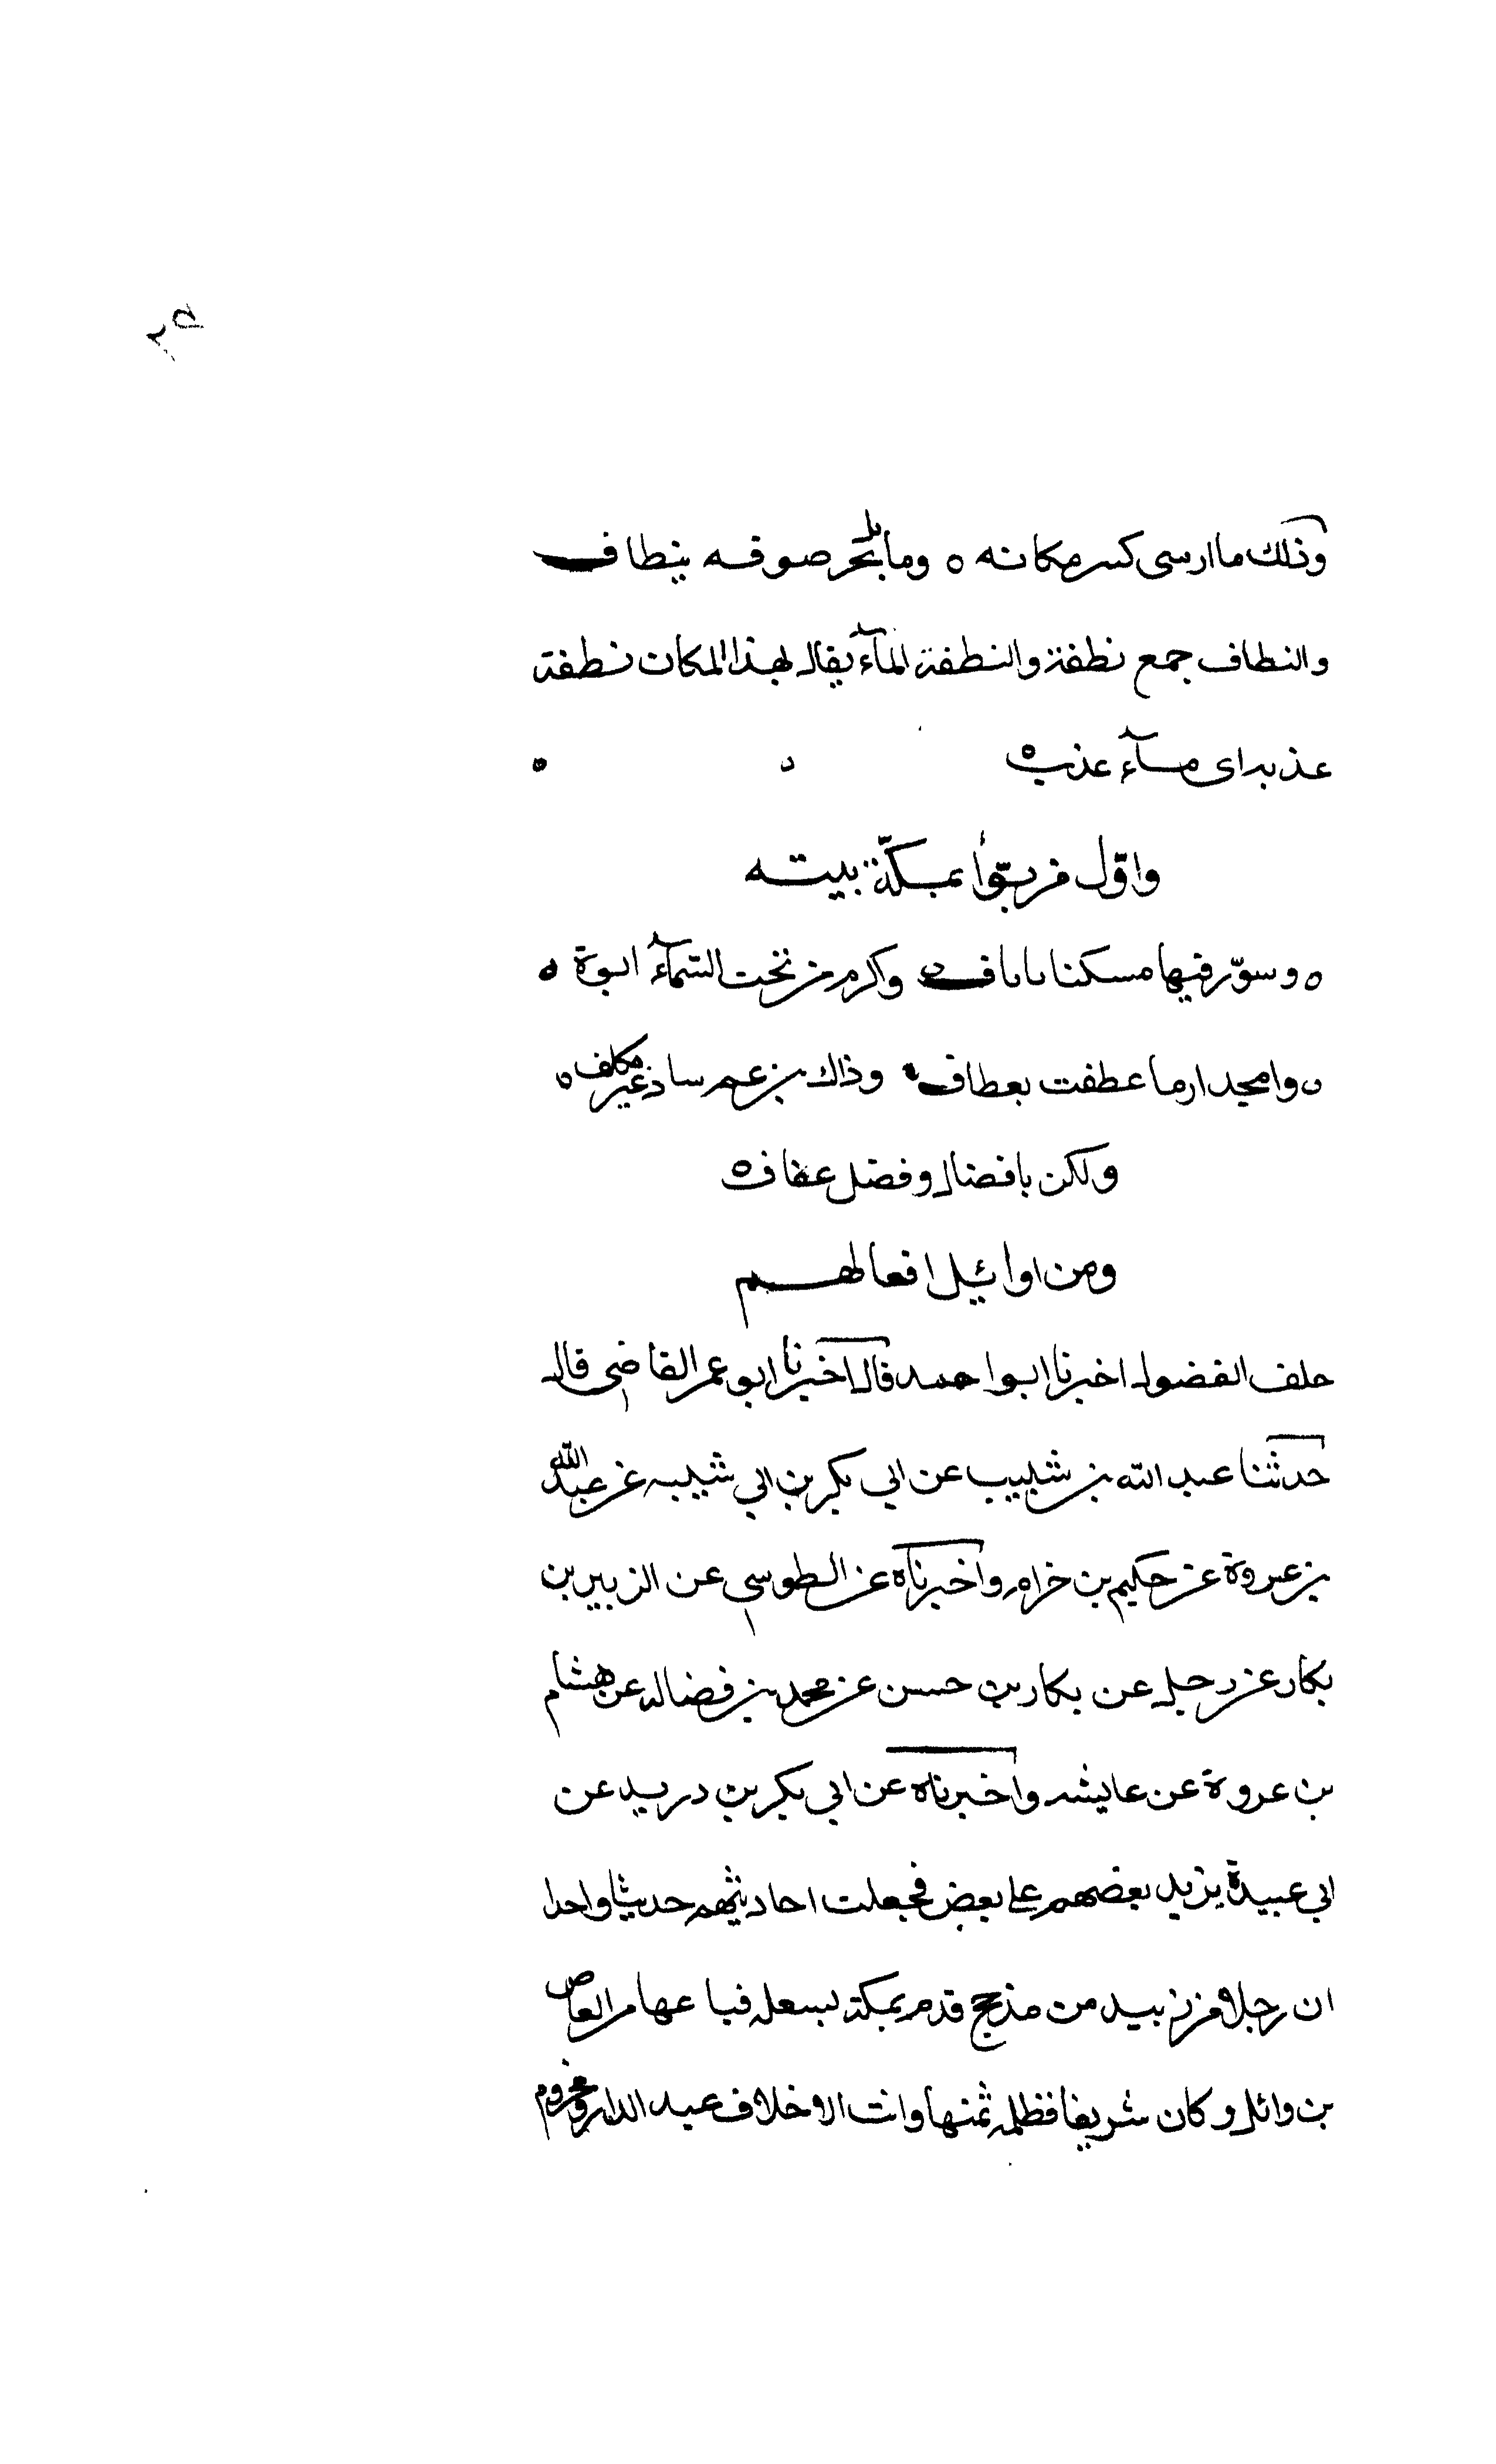 ٢٥
وذلك ما ارسى كسر مكانه ه وما بل بحر صوفه بنطاف
والنطاف جمع نطفة والنطفة المآء يقال لهذا المكان نطفة
عذبه اي مآء عذب ه
واوّل من بوّا بمكّة بيته
ه وسوّر فيها مسكنا باثاف واكرم من تحت السّمآء ابوة ه
ه وامجدارما عطفت بعطاف وذاك بزعم ساذ غير مكلف ه
ولكن بافضال وفضل عفاف ه
ومن اوائيل افعالهم
حلف الفضول اخبرنا ابوا حمد قال اخبرنا ابو عمر القاضي قال
حدثنا عبد الله بن شبيب عن ابي بكر بن ابي شيبه عن عبد الله
بن عروة عن حكيم بن حزام واخبرناه عن الطوسي عن الزبير بن
بكار عن رجل عن بكار بن حسن عن محمد بن فضاله عن هشام
بن عروة عن عايشه واخبرناه عن ابي بكر بن دريد عن
ابي عبيدة يزيد بعضهم على بعض فجعلت احاديثهم حديثا واحدا
ان رجلا من زبيد من مذحج قدم بمكة بسعله فباعها من العاص
بن وائل وكان شريفا فظلمه ثمنها واتت الاخلاف عبد الدار ومخزوم